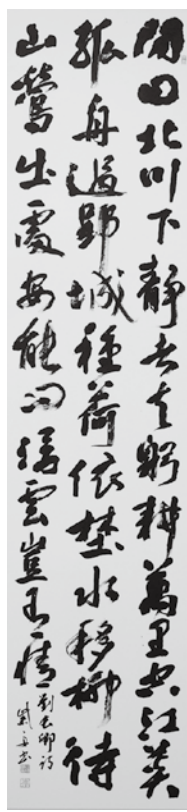 閑田北川下靜者去躬耕萬里空江菼
孤舟過郢城種荷依埜水移柳待
山鶯出處安能問浮雲豈有情
劉長卿詩
書